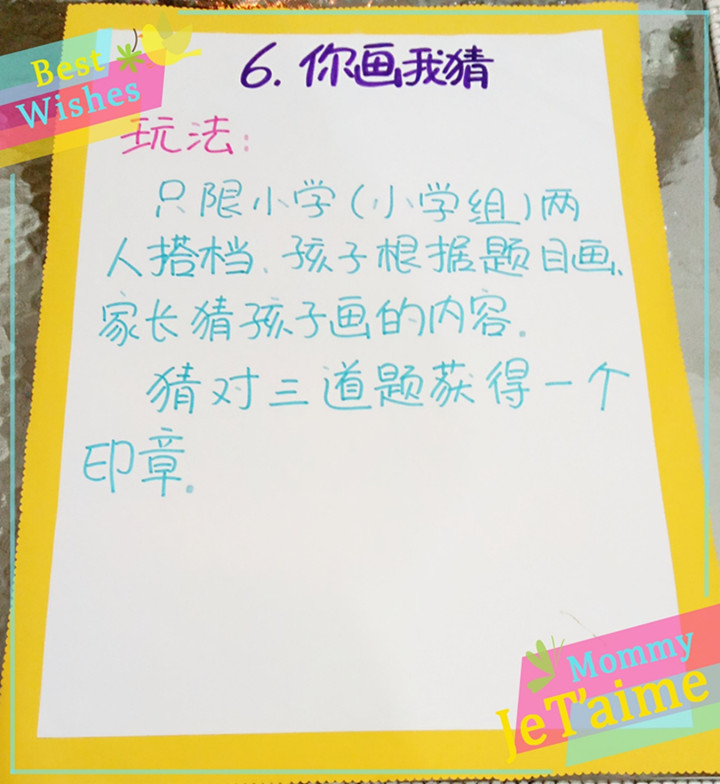 Best
Wishes
6. 你画我猜
玩法:
只限小学(小学组)两
人搭档、孩子根据题目画、
家长猜孩子画的内容.
猜对三道题获得一个
印章.
Mommy
JeT'aime